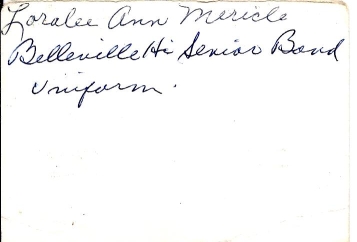 Loralee Ann Mericle
Belleville Hi Senior Band
Uniform.